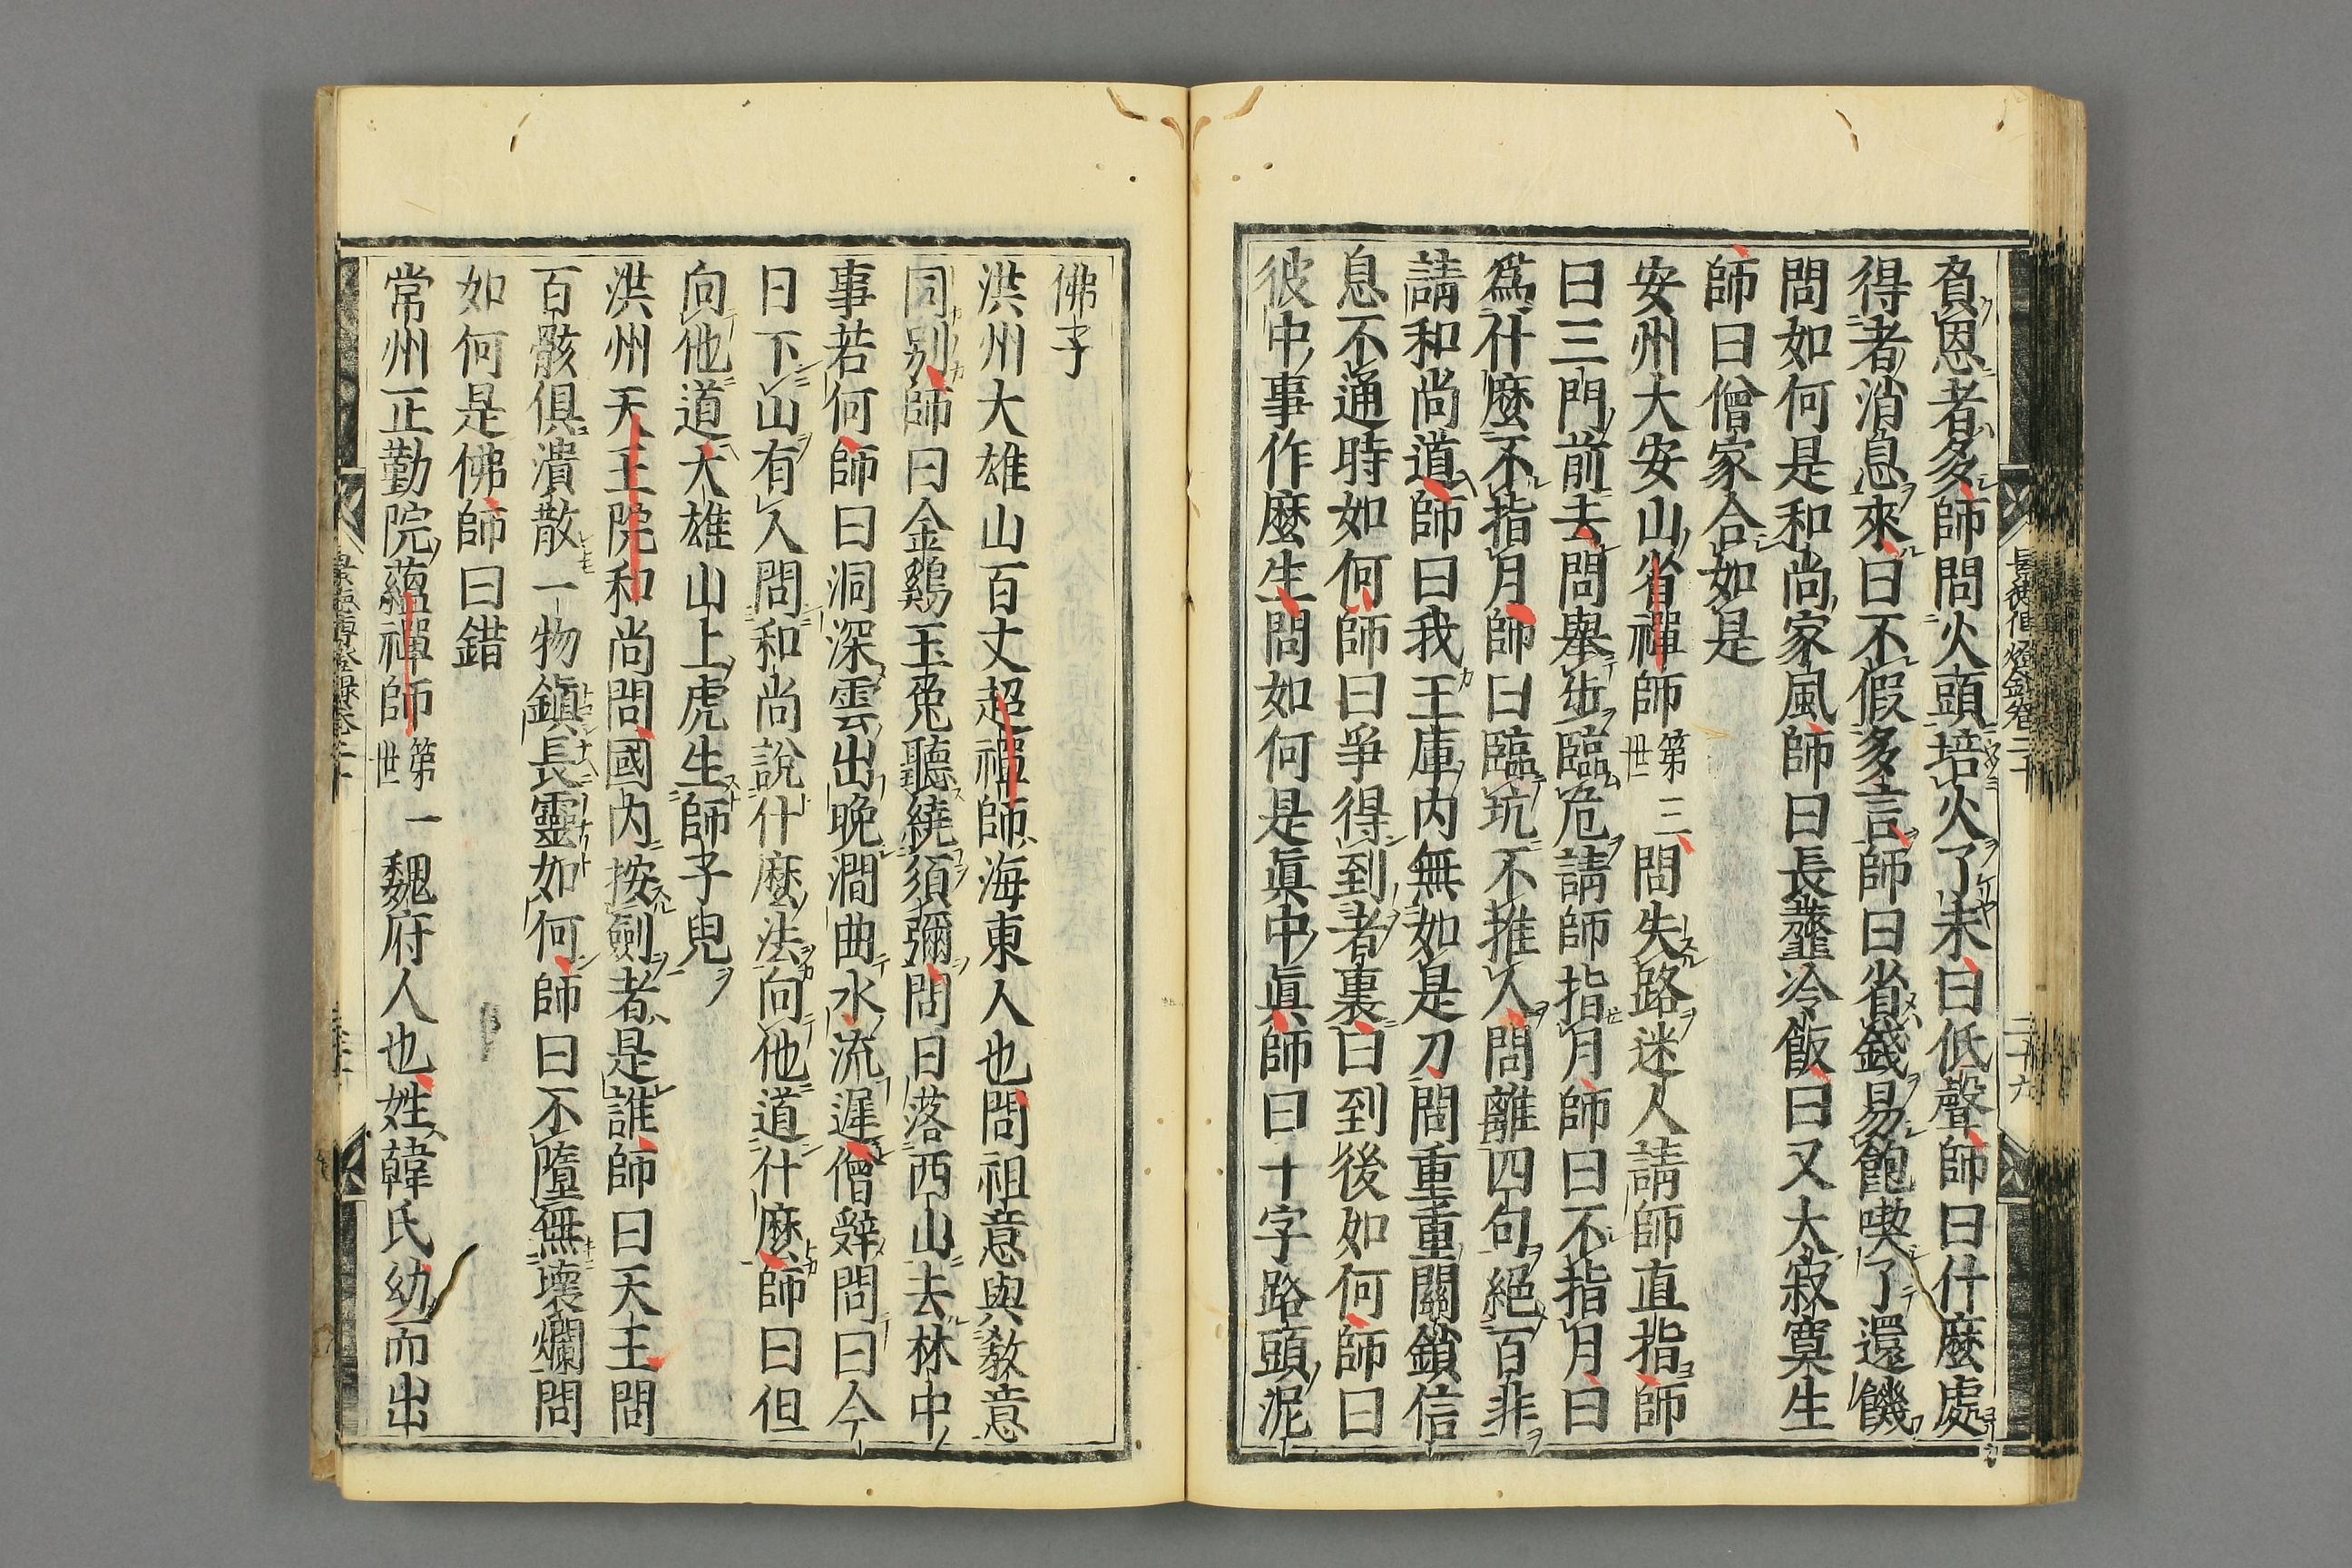 負恩者多師問火頭培火了未曰低聲師曰什麼處
得者消息來曰不假多言師曰省錢易飽喫了還饑
問如何是和尚家風師曰長虀冷飯曰又太寂寞生
師曰僧家合如是
安州大安山省禪師第三世問失路迷人請師直指師
曰三門前去問舉步臨危請師指月師曰不指月曰
爲什麼不指月師曰臨坑不推人問離四句絕百非
請和尚道師曰我王庫内無如是刀問重重關鎖信
息不通時如何師曰爭得到者裏曰到後如何師曰
彼中事作麼生問如何是眞中眞師曰十字路頭泥
佛子
洪州大雄山百丈超禪師海東人也問祖意與教意
同別師曰金鷄玉兔聽繞須彌問日落西山去林中
事若何師曰洞深雲出晚澗曲水流遲僧辤問曰今
日下山有人問和尚說什麼法向他道什麼師曰但
向他道大雄山上虎生師子皃
洪州天王院和尚問國内按劍者是誰師曰天王問
百骸俱潰散一物鎭長靈如何師曰不墮無壞爛問
如何是佛師曰錯
常州正勤院蘊禪師第一世魏府人也姓韓氏幼而出
景德傳燈錄卷二十